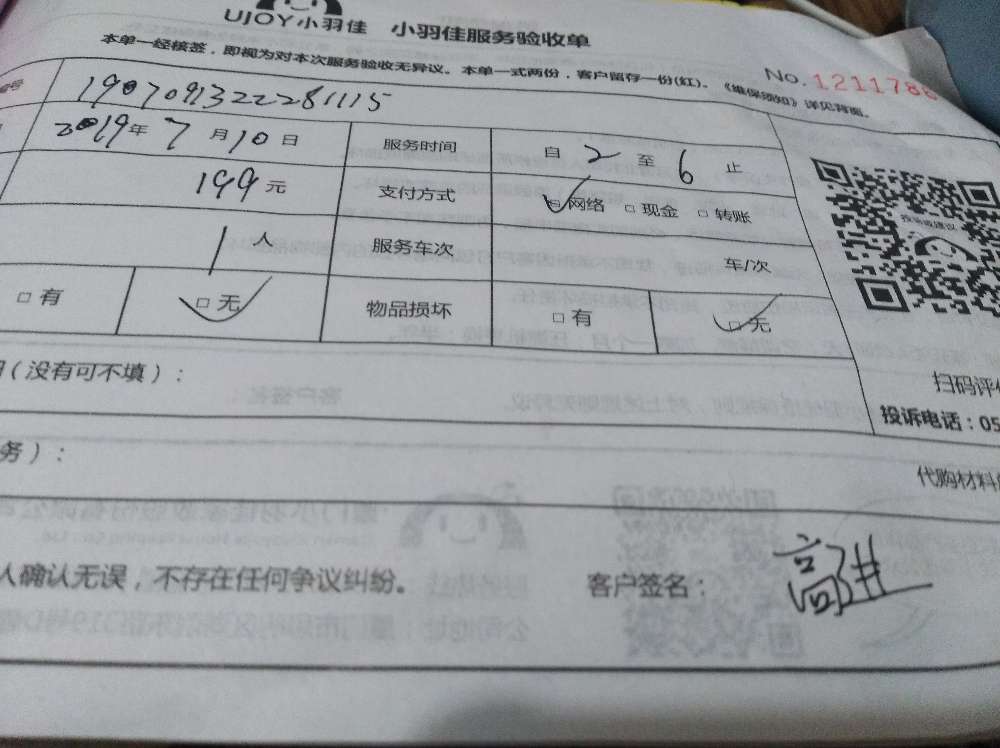 UJOY小羽佳 小羽佳服务验收单
No.121178
本单一经核签，即视为对本次服务验收无异议。本单一式两份，客户留存一份(红)。《维保须知》详见背面。
号 1907091322281115
2019年7月10日 服务时间 自2至6止
199元 支付方式 网络 □现金 □转账
服务车次 车/次
□有 □无 物品损坏 □有 □无
投诉或建议
(没有可不填)：
扫码评
投诉电话：05
务)：
代购材料
人确认无误，不存在任何争议纠纷。 客户签名：高进